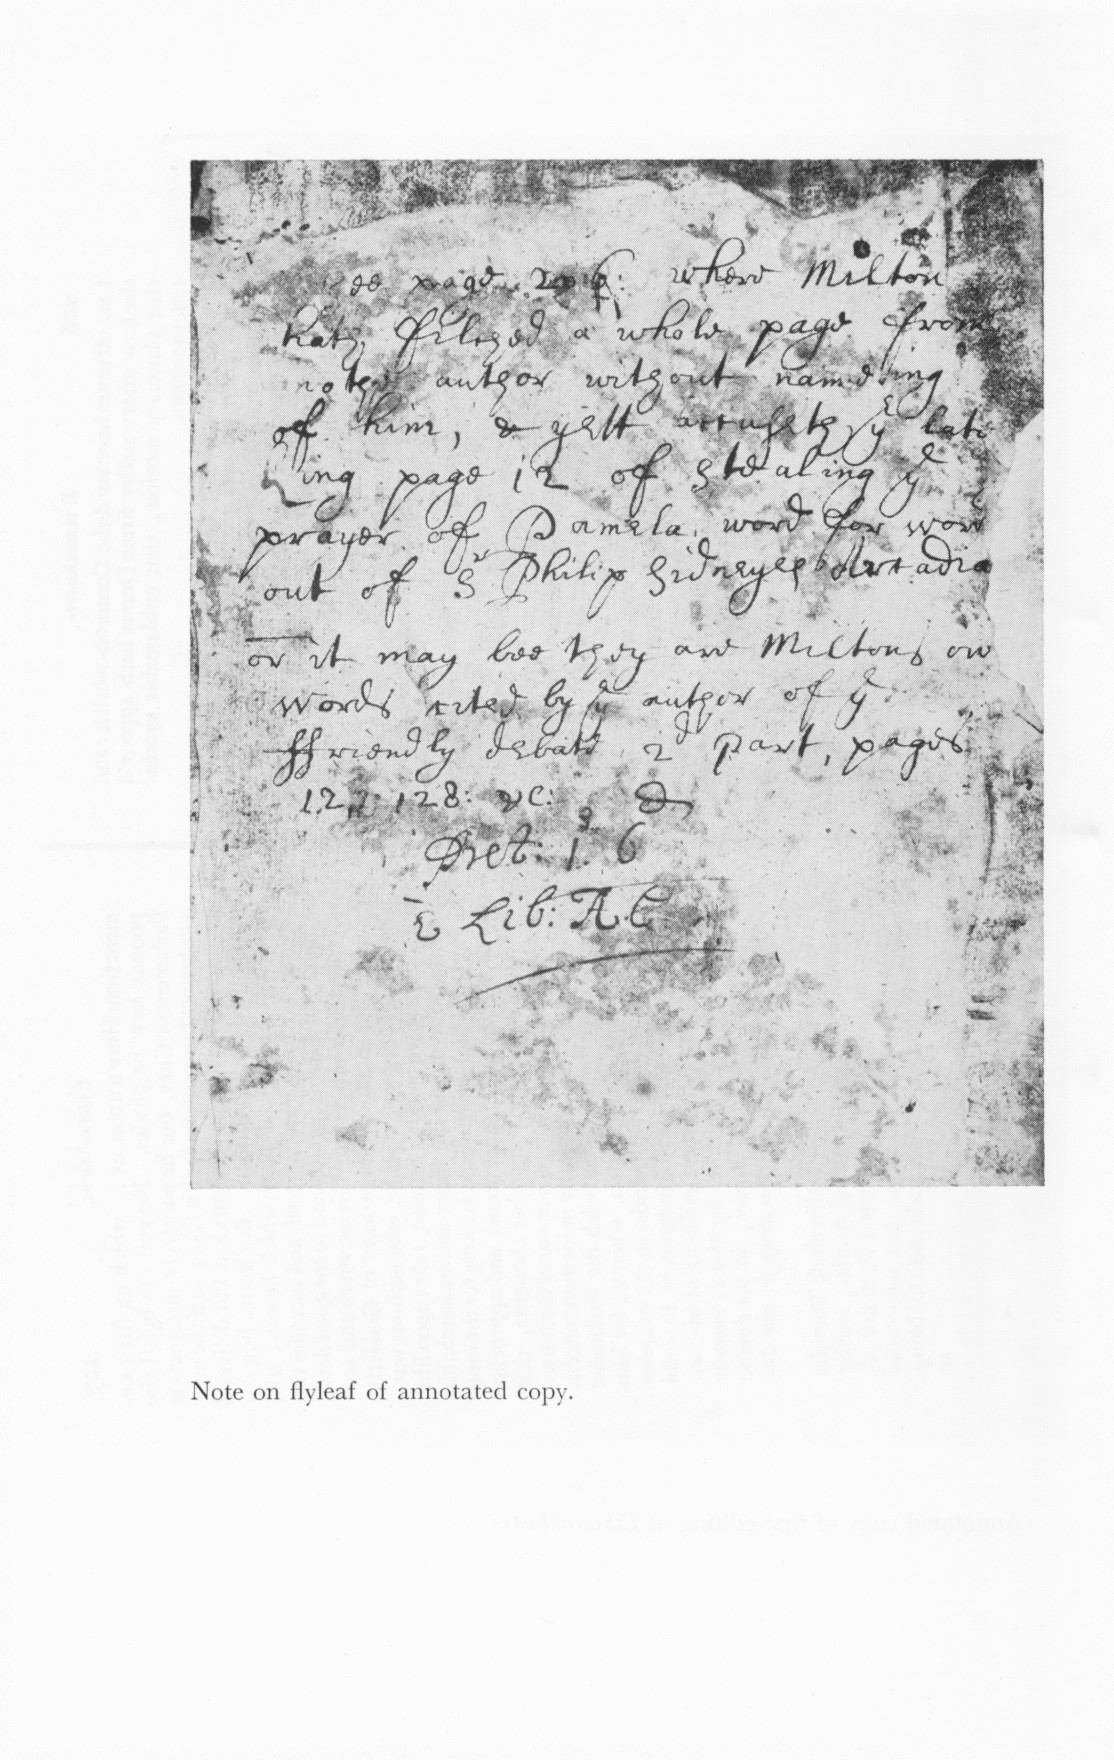 ee page 206: where Milton
hath filched a whole page from
nother author without nameing
of him, & yett accuseth yͤ late
King page 12 of stealing yͤ
prayer of Pamela word for wor
out of Sʳ Philip Sidneyes Arcadia
or it may bee they are Miltons ow
words cited by yͤ author of yͤ
ffriendly debate 2ᵈ part, pages
127 128: &c: &
Pret: 1ˢ. 6
E Lib: A.C
Note on flyleaf of annotated copy.